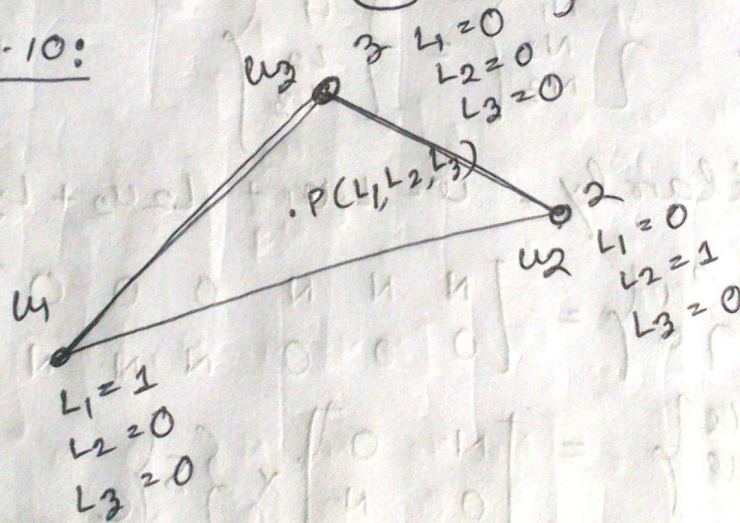 -10:
u3 3 L1=0
L2=0
L3=0
.P(L1,L2,L3)
2
u2 L1=0
L2=1
L3=0
u1
L1=1
L2=0
L3=0